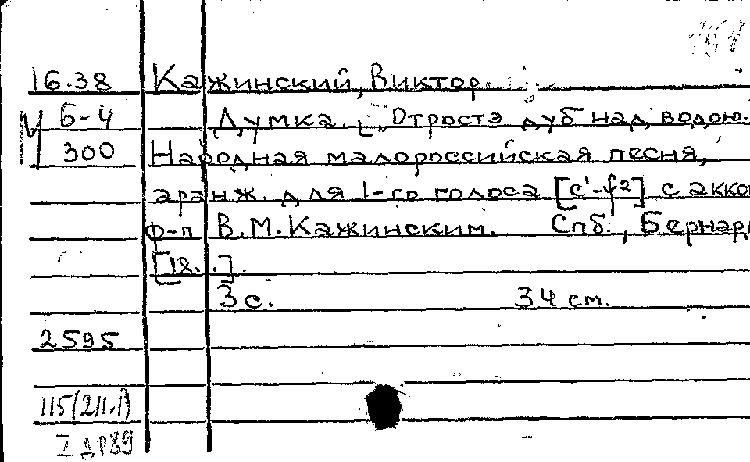 16.38 Кажинский, Виктор.
М 6-4 Думка. [„Отростэ дуб над водою.
300 Народная малороссийская песня,
аранж. для 1-го голоса [c¹-f²] с акко
ф-п В.М. Кажинским. Спб., Бернар
[18..].
3 с. 34 см.
2595
115(211.1)